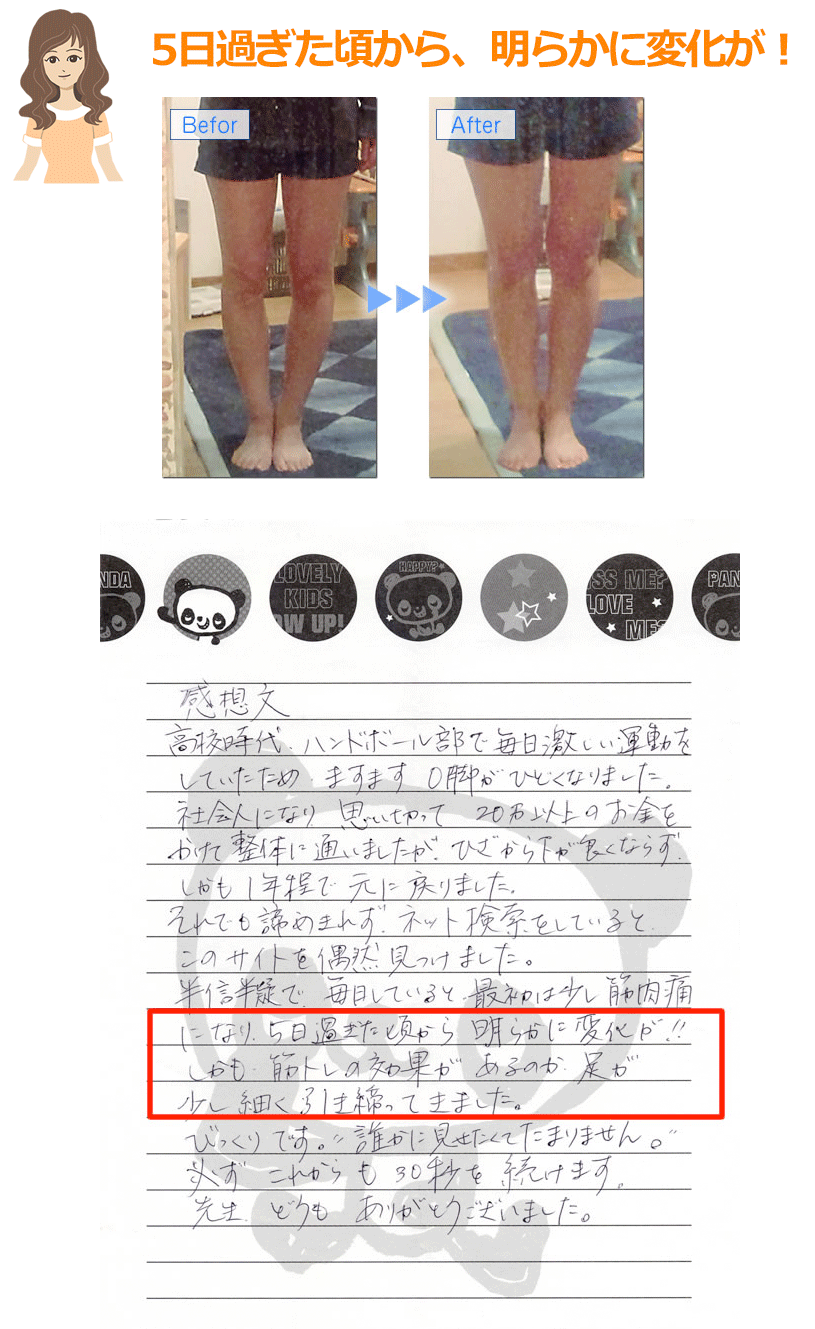 5日過ぎた頃から、明らかに変化が！
Befor
After
NDA
LOVELY
KIDS
OW UP!
HAPPY?
SS ME?
LOVE
ME?
PAN
感想文
高校時代、ハンドボール部で毎日激しい運動を
していたため、ますますO脚がひどくなりました。
社会人になり、思い切って20万以上のお金を
かけて整体に通いましたが、ひざから下が良くならず、
しかも1年程で元に戻りました。
それでも諦めきれず、ネット検索をしていると、
このサイトを偶然見つけました。
半信半疑で、毎日していると、最初は少し筋肉痛
になり、5日過ぎた頃から、明らかに変化が!!
しかも、筋トレの効果があるのか、足が
少し細く引き締ってきました。
びっくりです。"誰かに見せたくてたまりません。"
必ずこれからも30秒を続けます。
先生、どうもありがとうございました。